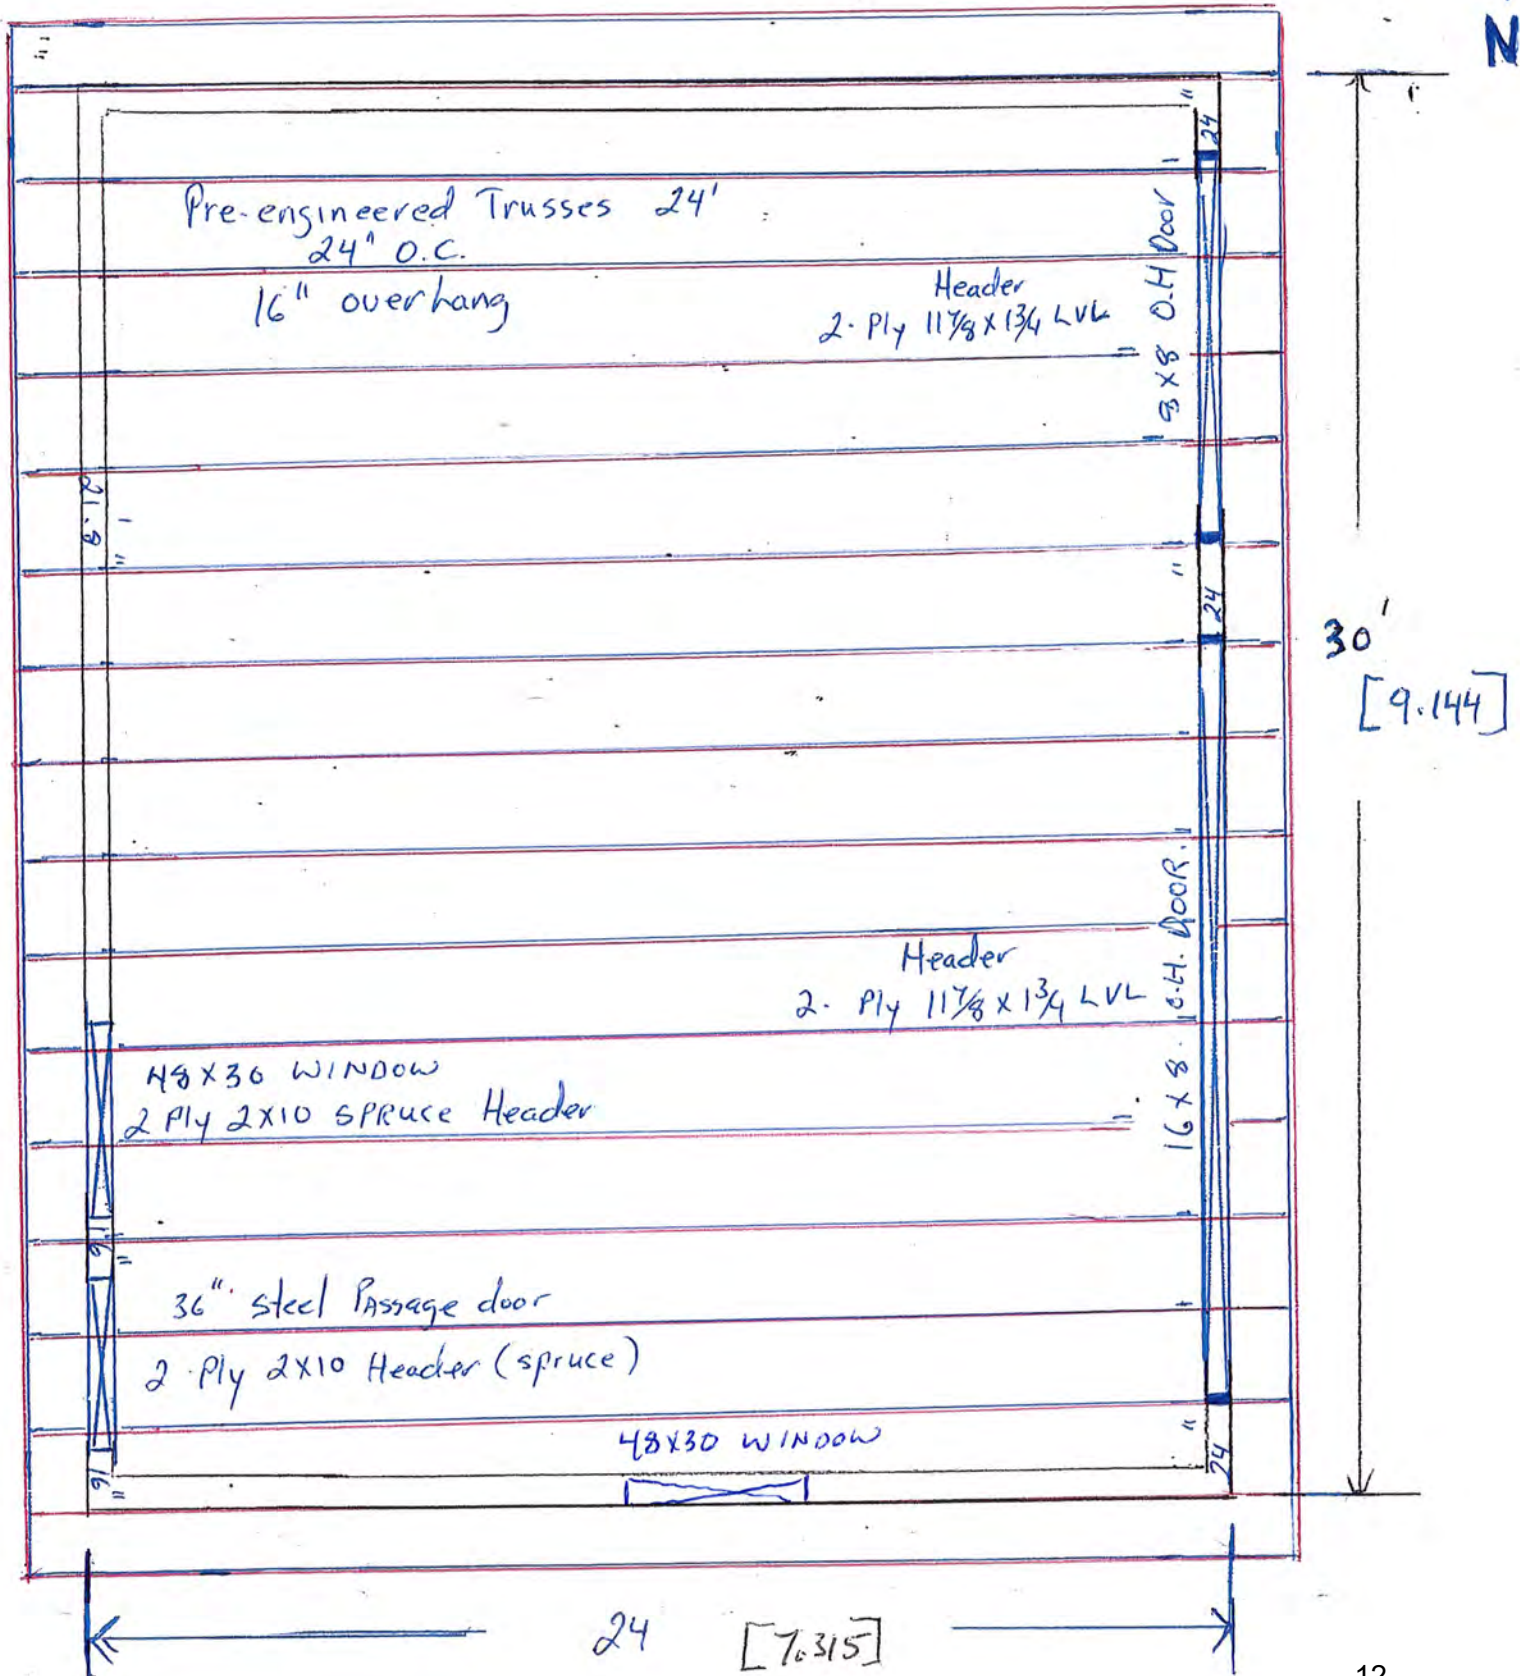 N
24"
Pre-engineered Trusses 24'
24" O.C.
16" overhang
Header
2-Ply 11 7/8 X 1 3/4 LVL
8 X 8 O.H Door
21.8
24"
30'
[9.144]
Header
2. Ply 11 7/8 X 1 3/4 LVL
16 X 8. O.H. DOOR.
48X30 WINDOW
2 Ply 2X10 SPRUCE Header
16"
36" steel Passage door
2-Ply 2X10 Header (spruce)
48X30 WINDOW
16"
24"
24 [7.315]
12